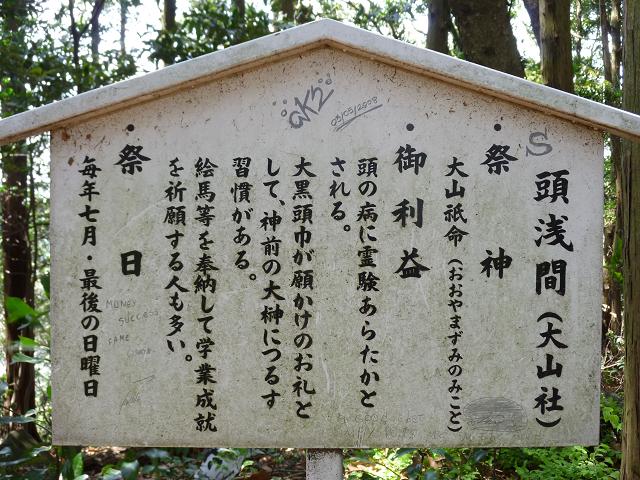 頭浅間（大山社）
・祭神
大山祇命（おおやまずみのみこと）
・御利益
頭の病に霊験あらたかと
される。
大黒頭巾が願かけのお礼と
して、神前の大榊につるす
習慣がある。
絵馬等を奉納して学業成就
を祈願する人も多い。
・祭日
毎年七月・最後の日曜日
AK2
03/05/2008
S
MONEY
SUCCESS
FAME